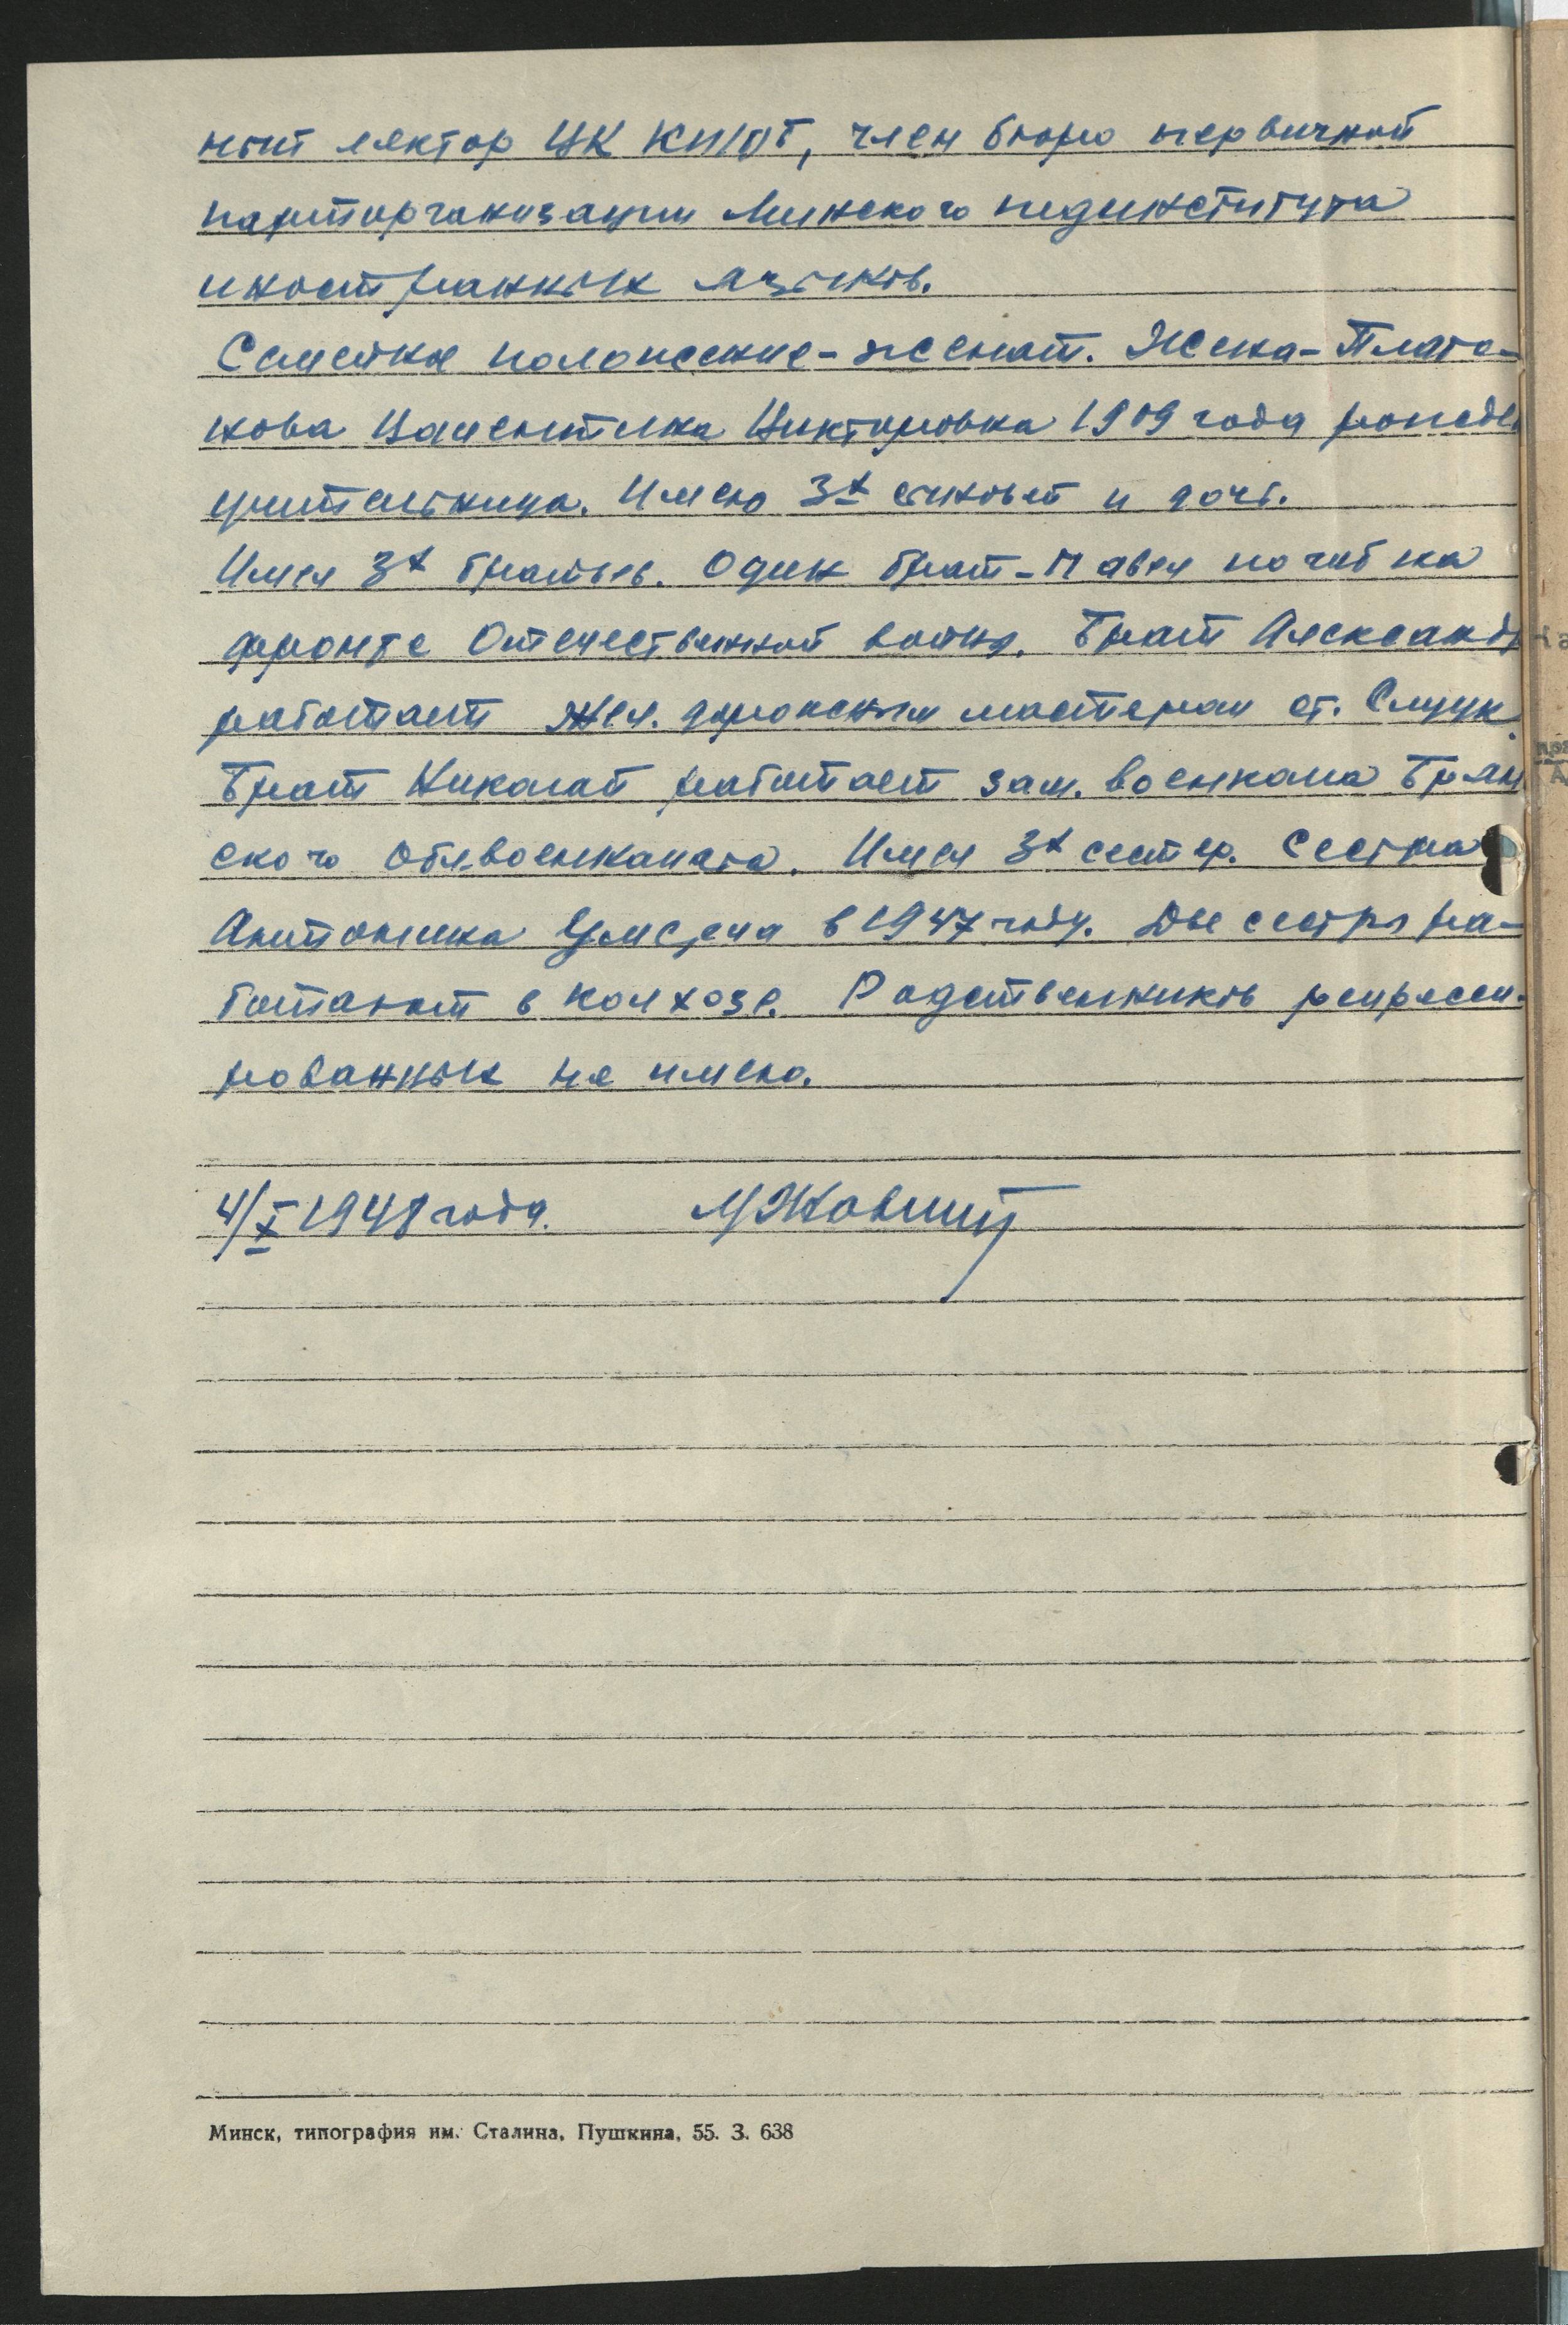 ный лектор ЦК КП/б/Б, член бюро первичной
парторганизации Минского пединститута
иностранных языков.
Семейное положение - женат. Жена - Плато-
нова Валентина Викторовна 1909 года рожде
учительница. Имею 3х сыновей и дочь.
Имел 3х братьев. Один брат - Павел погиб на
фронте Отечественной войны. Брат Александр
работает жел. дорожным мастером ст. Слуцк.
Брат Николай работает зам. военкома Брян
ского облвоенкомата. Имел 3х сестер. Сестра
Антонина умерла в 1947 году. Две сестры ра-
ботают в колхозе. Родственников репресси-
рованных не имею.
4/X 1948 года.
Минск, типография им. Сталина, Пушкина, 55. З. 638